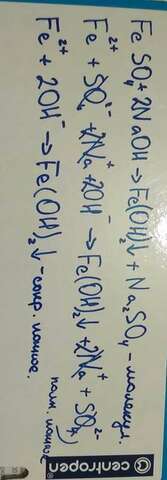 FeSO₄ + 2NaOH → Fe(OH)₂↓ + Na₂SO₄ - молекул.
Fe²⁺ + SO₄²⁻ + 2Na⁺ + 2OH⁻ → Fe(OH)₂↓ + 2Na⁺ + SO₄²⁻ полн. ионное
Fe²⁺ + 2OH⁻ → Fe(OH)₂↓ - сокр. ионное.
centropen